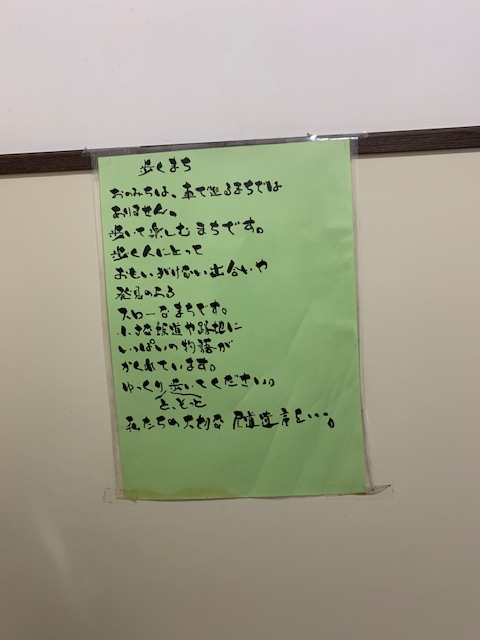 歩くまち
おのみちは、車で巡るまちでは
ありません。
歩いて楽しむまちです。
歩く人にとって
おもいがけない出合いや
発見のある
スローなまちです。
小さな坂道や路地に
いっぱいの物語が
かくれています。
ゆっくり歩いてください。
と、そっと
私たちの大切な尾道遺言を…。